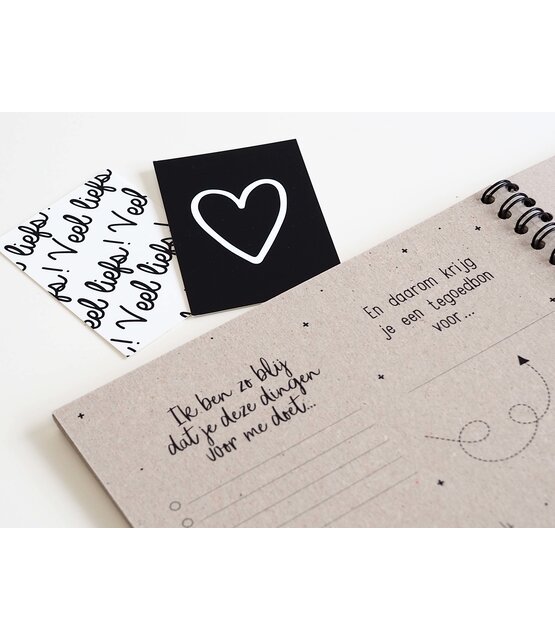 liefs!
Veel liefs
liefs! Veel
Veel liefs!
liefs! Veel
! Veel liefs!
Ik ben zo blij
dat je deze dingen
voor me doet...
En daarom krijg
je een tegoedbon
voor...